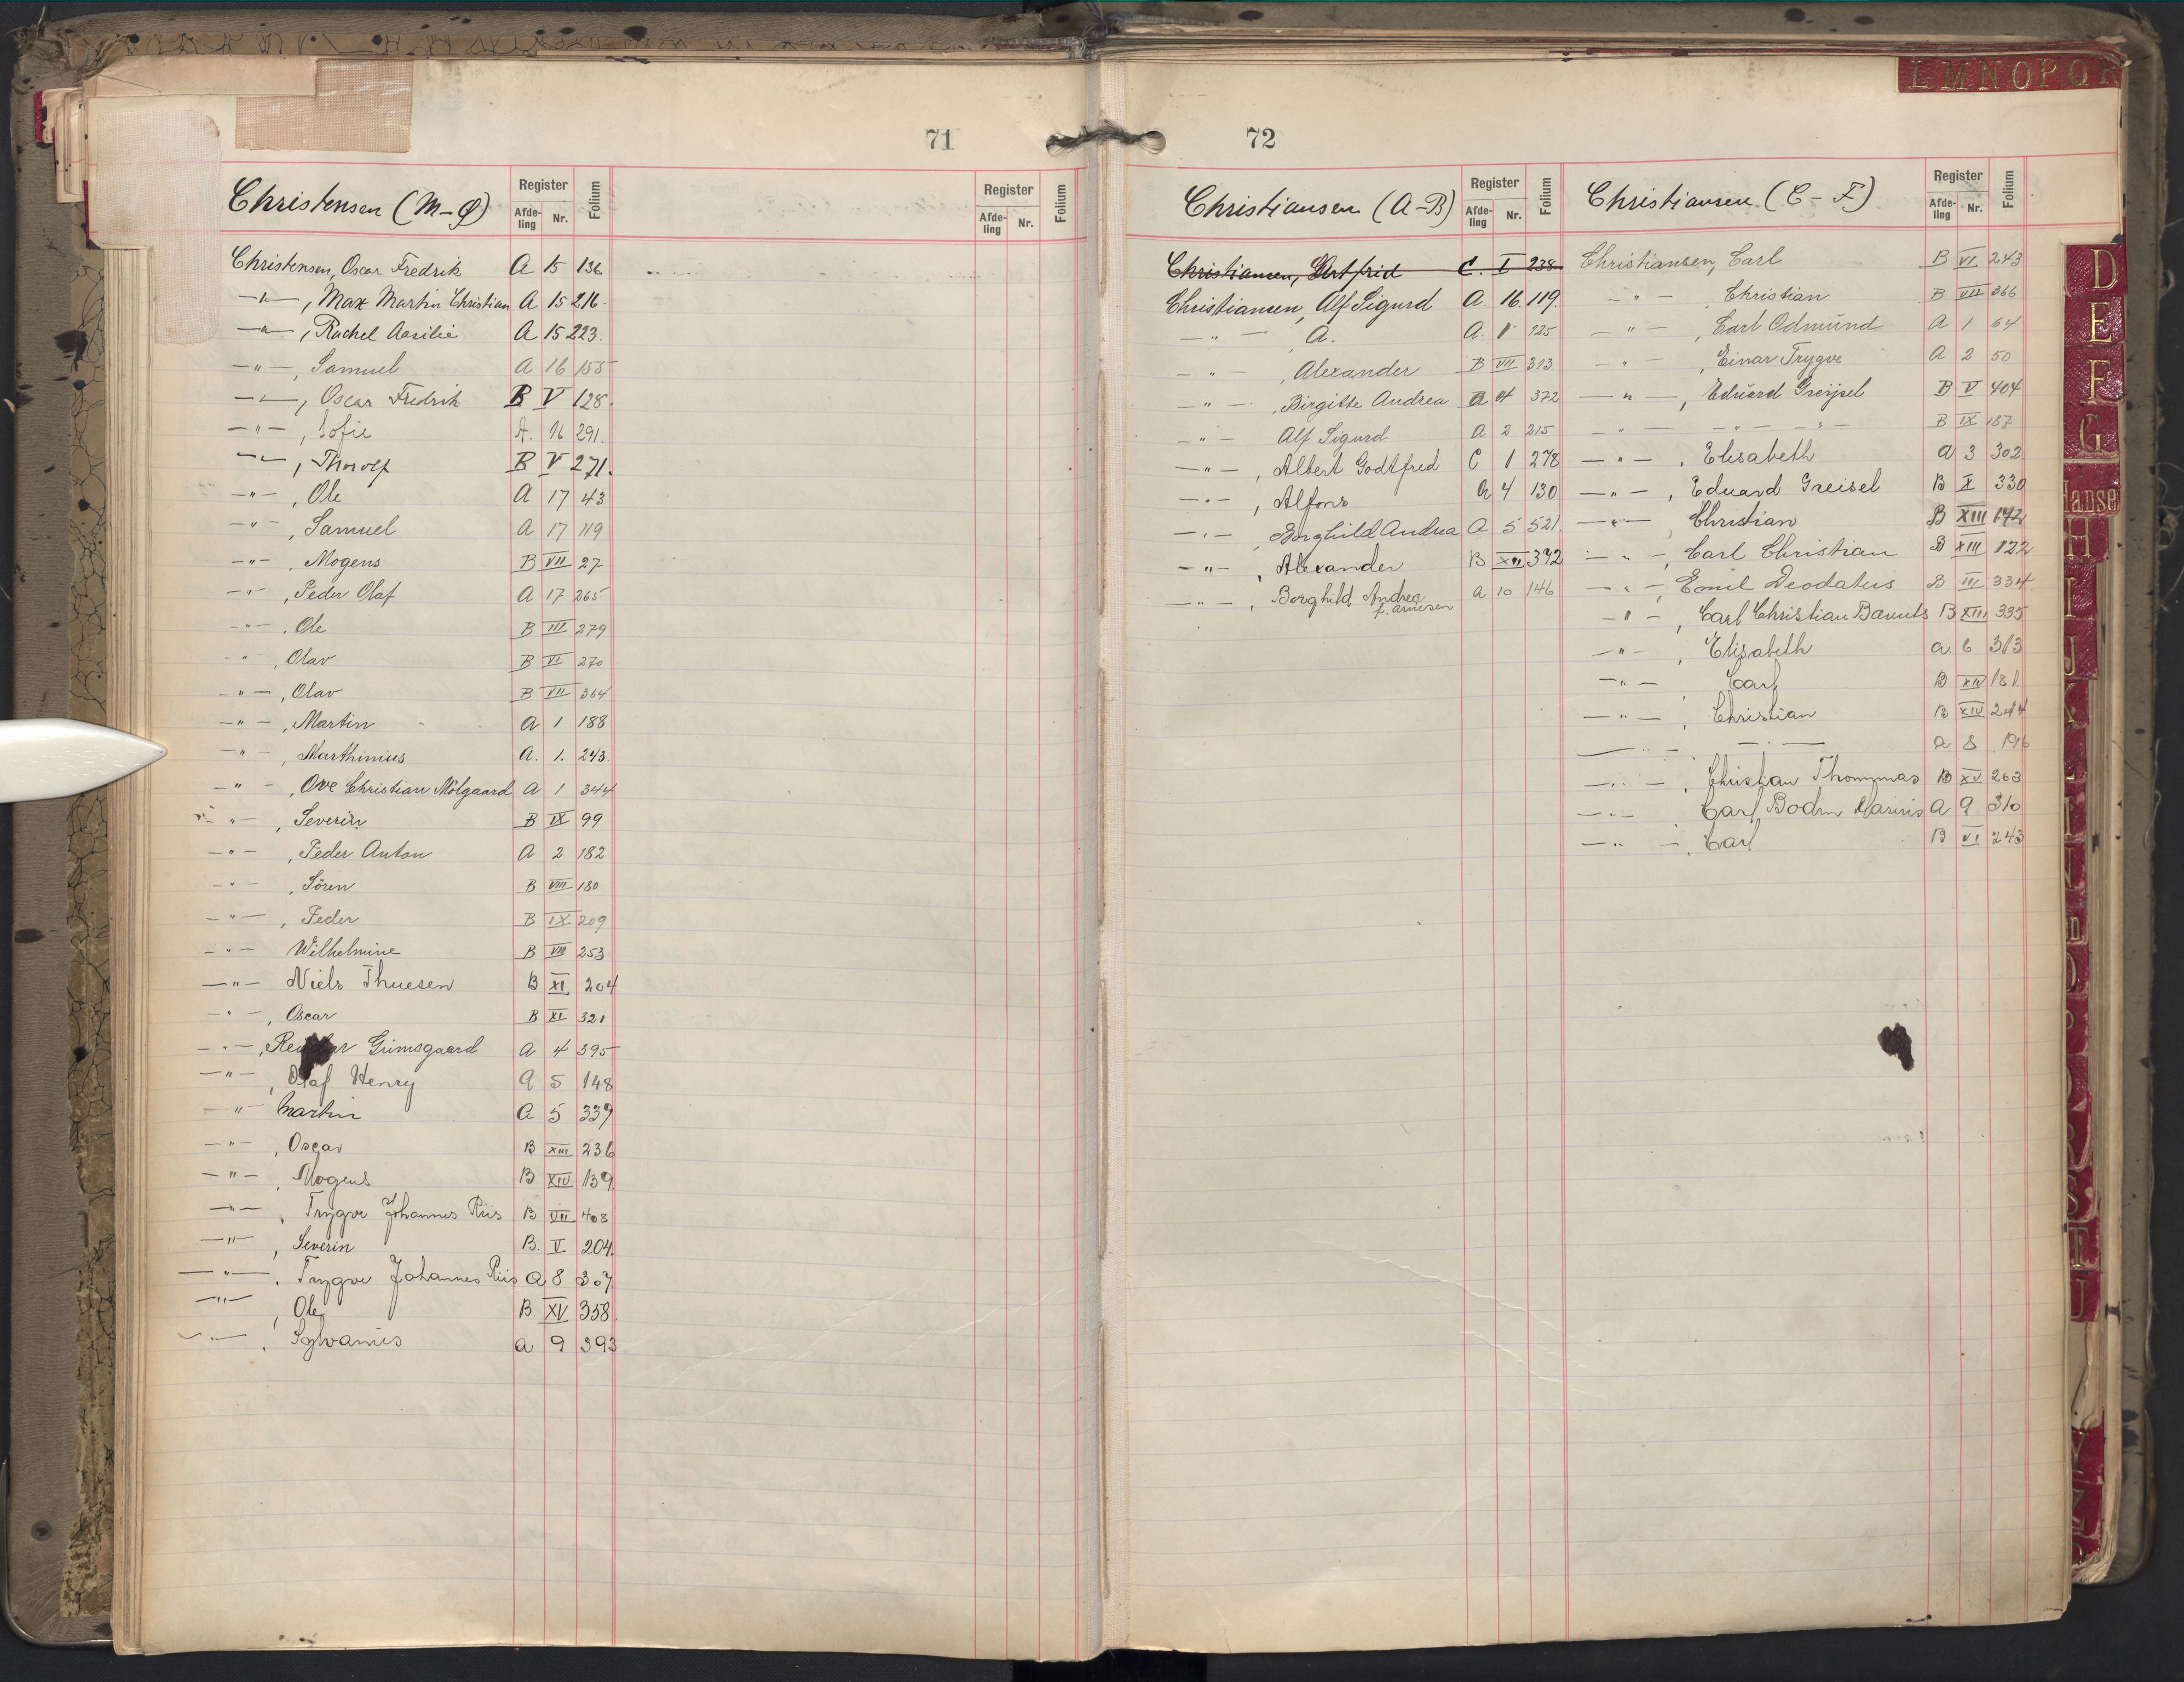 71
Christensen (M-Ø)
Register
Afde-
ling
Nr.
Folium
Register
Afde-
ling
Nr.
Folium
Christensen, Oscar Fredrik A 15 136
—"—, Max Martin Christian A 15 216.
—"—, Rachel Aasilie A 15 223.
—"—, Samuel A 16 155
—"—, Oscar Fredrik B V 128.
—"—, Sofie A. 16 291.
—"—, Thorolf B V 271.
—"—, Ole A 17 43
—"—, Samuel A 17 119
—"—, Mogens B VII 27
—"—, Peder Olaf A 17 265
—"—, Ole B III 279
" , Olav B VI 270
—"—, Olav B VII 364
—"—, Martin A 1 188
—"—, Marthinius A. 1. 243.
—"—, Ove Christian Mölgaard A 1 344
—"—, Severin B IX 99
—"—, Peder Anton A 2 182
—"—, Sören B VIII 180
—"—, Peder B IX 209
—"— Wilhelmine B VIII 253
—"— Niels Thuesen B XI 204
—"—, Oscar B XI 321
—"—, Grimsgaard A 4 395
—"—, Olaf Henry A 5 148
—"— Martin A 5 339
—"—, Oscar B XIII 236
—"—, Mogens B XIV 139
—"—, Trygve Johannes Riis B VII 408
—"—, Severin B. V 204.
—"—, Trygve Johannes Riis A 8 307
—"—, Ole B. XV 358.
—"—, Sylvanus A 9 393
72
Christiansen (A-B)
Register
Afde-
ling
Nr.
Folium
Christiansen, C. I 238
Christiansen, Alf Sigurd A. 16. 119.
—"— , A. A. 1 125
—"— , Alexander B VII 313
—"— , Birgitte Andrea A 4 372
—"— Alf Sigurd A 2 215
—"—, Albert Godtfred C 1 278
—"—, Alfons A 4 130
—"—, Borghild Andrea A 5 521.
—"—, Alexander B XII 392
—"—, Borghild Andrea A 10 146
f. Arnesen
Christiansen (C-F)
Register
Afde-
ling
Nr.
Folium
Christiansen, Carl B VI 243
—"— , Christian B VII 366
—"—, Carl Odmund A 1 64
—"—, Einar Trygve A 2 50
—"—, Eduard Greijsel B V 404
—"— —"— —"— B IX 187
—"— , Elisabeth A 3 302
—"—, Eduard Greisel B X 330
—"—, Christian B XIII 142
—"—, Carl Christian B XIII 122
—"—, Emil Deodatus B III 334
—"—, Carl Christian Bavnts B XIII 335
—"—, Elisabeth A. 6 313
—"— Carl B XIV 181.
—"—, Christian B XIV 244
—"— —"— A 8 196
—"—, Christian Thommas B XV 263
—"—, Carl Bodin Marius A 9 310
—"—, Carl B VI 243
L M N O P Q R
D
E
F
G
Hanse
H
I
J
K